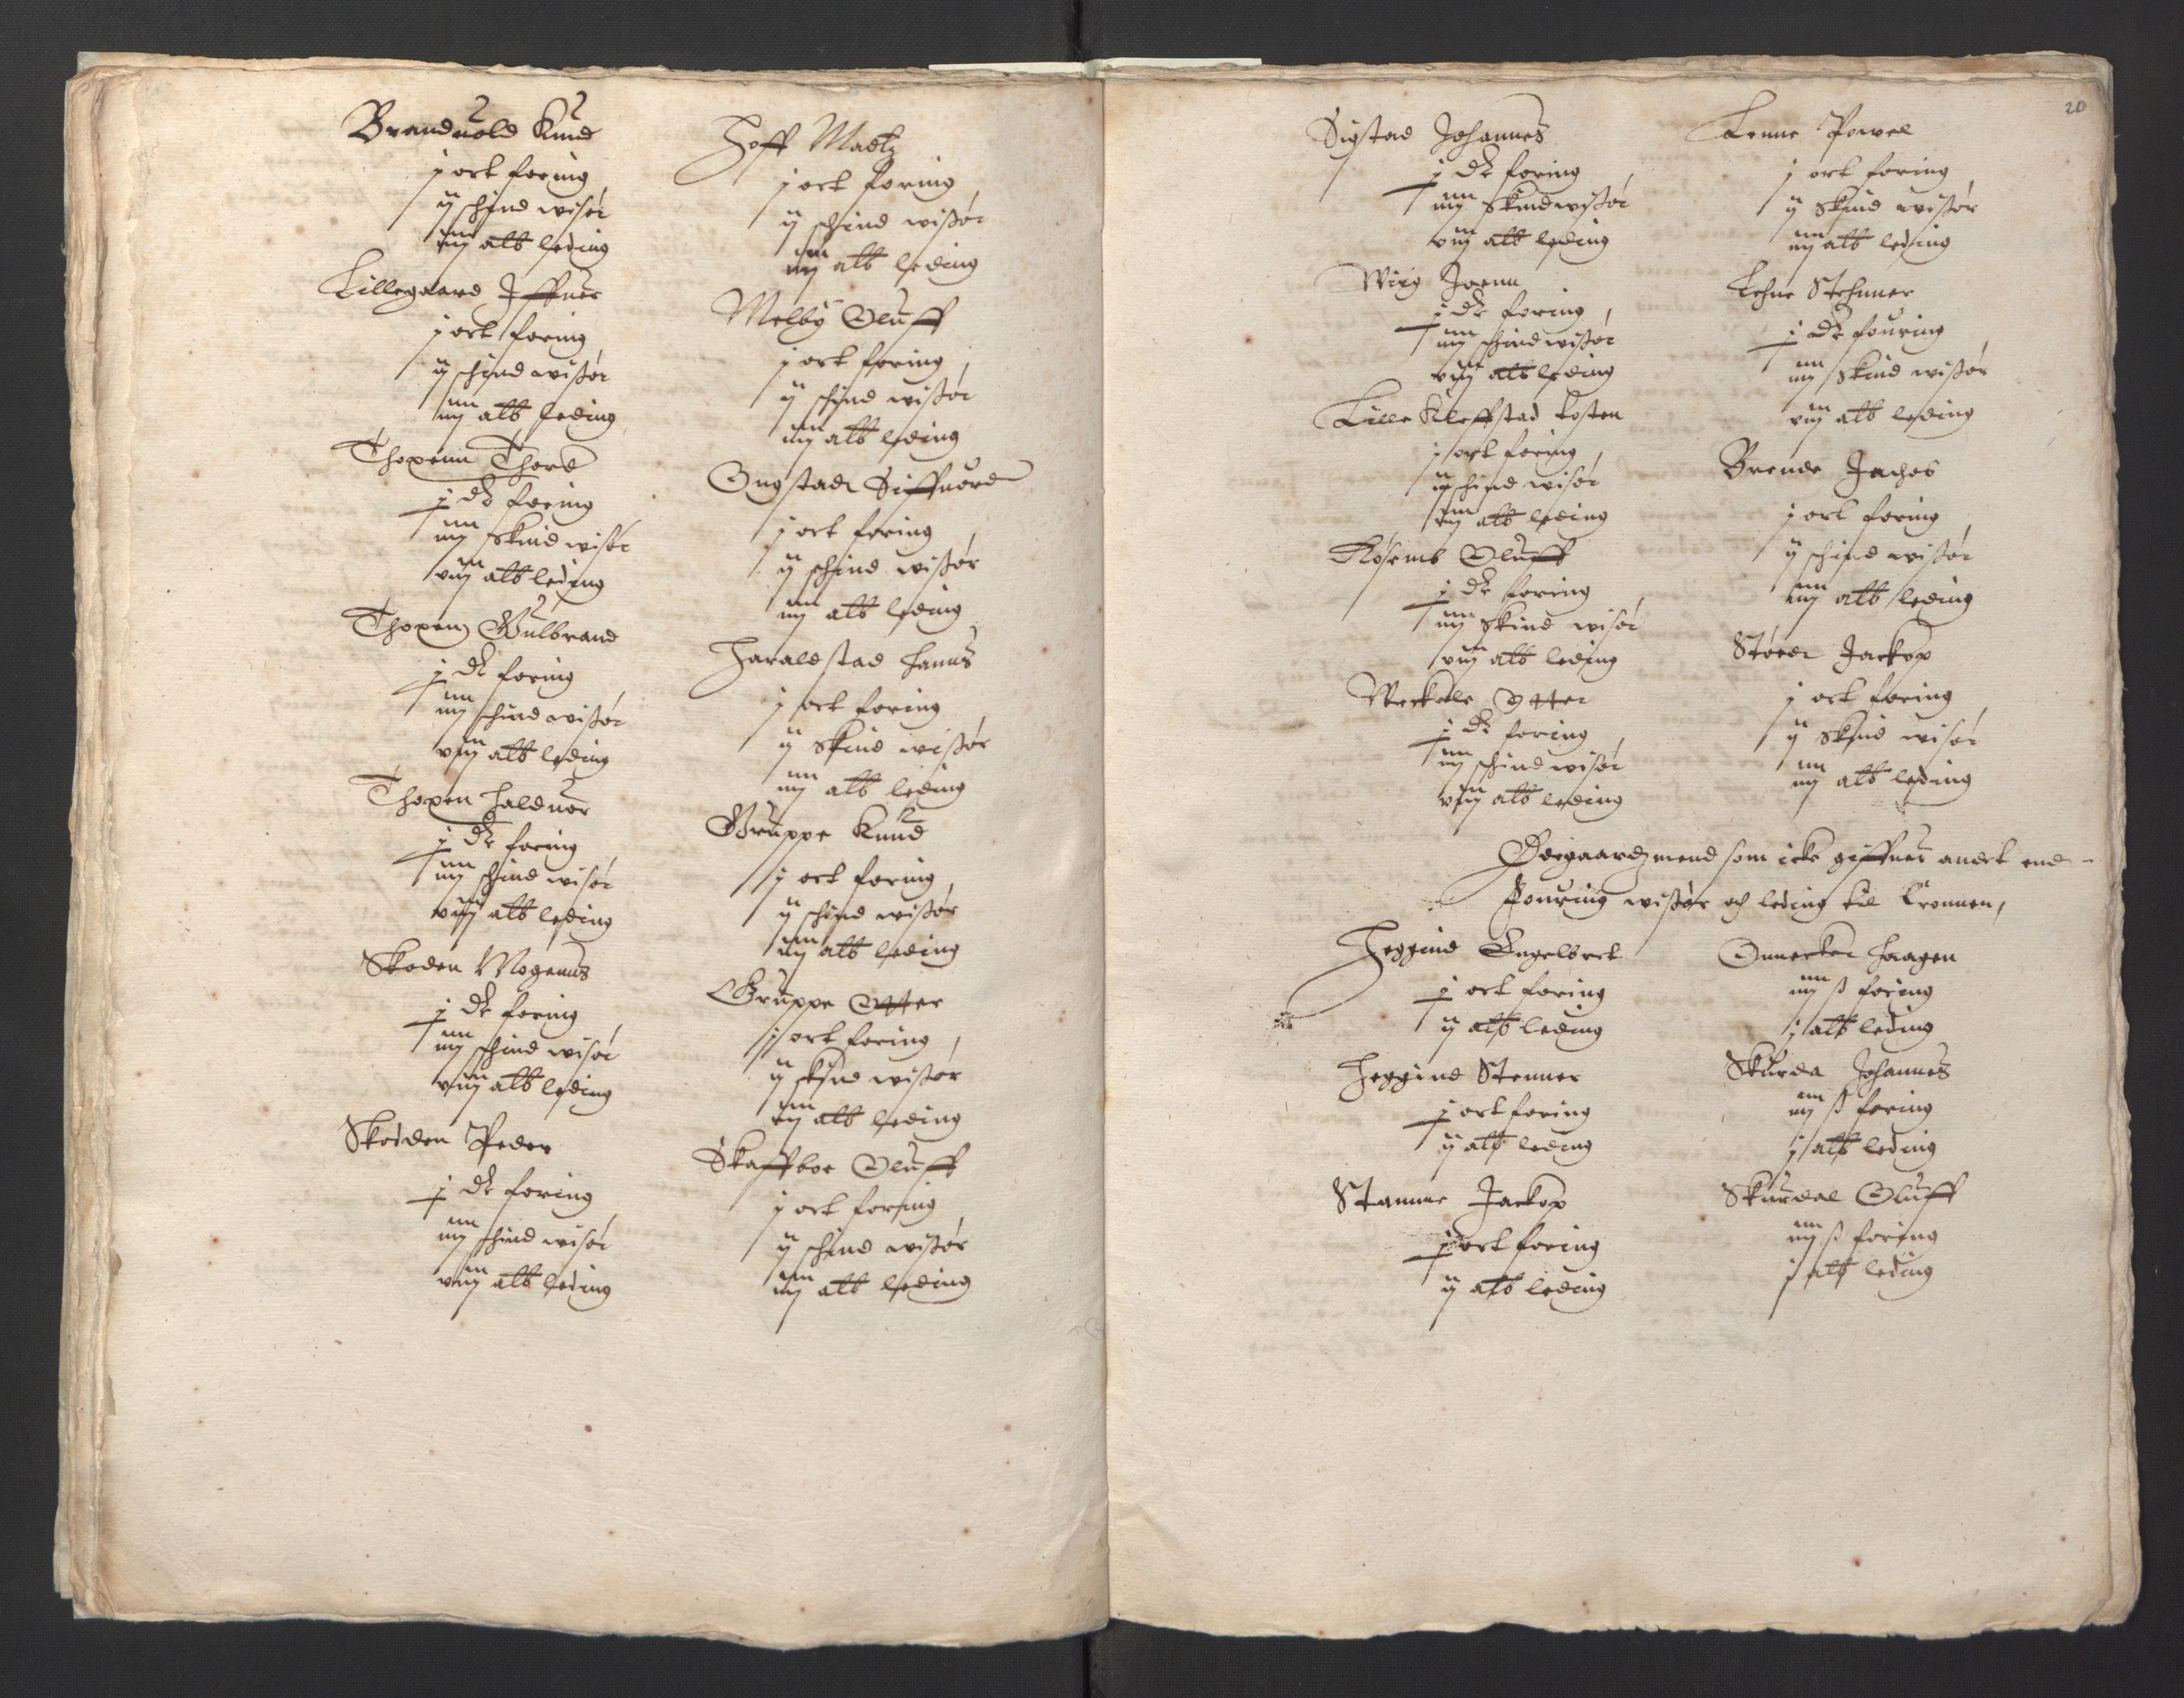 Branduold Knud
j ort foring
ij schind wisør
iiij alb leding
Lillegaard Iffuer
j ort foring
ij schind wissør
iiij alb leding
Thoxenn Thord
j dr foring
iiij skind wisør
viij alb leding
Thoxenn Gulbrand
j dr foring
iiij schind wissør
viij alb leding
Thoxen Halduor
j dr foring
iiij schind wisør
viij alb leding
Skoden Mogenns
j dr foring
iiij schind wisør
viij alb leding
Skodden Peder
j dr foring
iiij schind wisør
viij alb leding
Hoff Madtz
j ort foring
ij schind wissør
iiij alb leding
Melby Oluff
j ort foring
ij schind wissør
iiij alb leding
Ongstade Siffuord
j ort foring
ij schind wissør
iiij alb leding
Haraldstad Hanns
j ort foring
ij skind wissør
iiij alb leding
Gruppe Knud
j ort foring
ij schind wissør
iiij alb leding
Gruppe Otter
j ort foring
ij skind wissør
iiij alb leding
Skaffboe Oluff
j ort foring
ij schind wissør
iiij alb leding
20
Sigstad Johannes
j dr foring
iiij skind wissør
viij alb leding
Wiig Joenn
j dr foring
iiij schind wissør
viij alb leding
Lille Kleffstad Tosten
j ort foring
ij schind wisør
iiij alb leding
Rosemb Oluff
j dr foring
iiij skind wisør
viij alb leding
Weckele Otter
j dr foring
iiij schind wisør
viij alb leding
Lenne Powel
j ort foring
ij skind wissør
iiij alb leding
Lehne Stehnner
j dr fouring
iiij skind wissør
viij alb leding
Brende Jachob
j ort foring
ij schind wissør
iiij alb leding
Støede Jackop
j ort foring
ij skind wisør
iiij alb leding
Ødegaardzmend som icke giffuer andet end
fouring wissør och leding til Cronnen,
Heggind Engelbret
j ort foring
ij alb leding
Heggind Stenner
j ort foring
ij alb leding
Stamme Jackop
j ort foring
ij alb leding
Haagen
iiij ß foring
j alb leding
Skurda Johannes
iiij ß foring
j alb leding
Skurdal Oluff
iiij ß foring
j alb leding